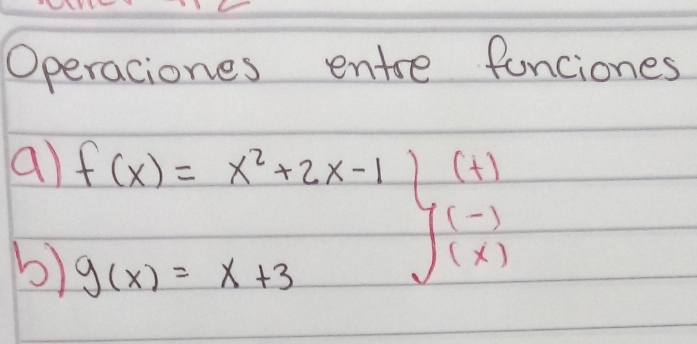 Operaciones entre funciones
a) f(x) = x²+2x-1 (+)
(-)
(x)
b) g(x) = x+3